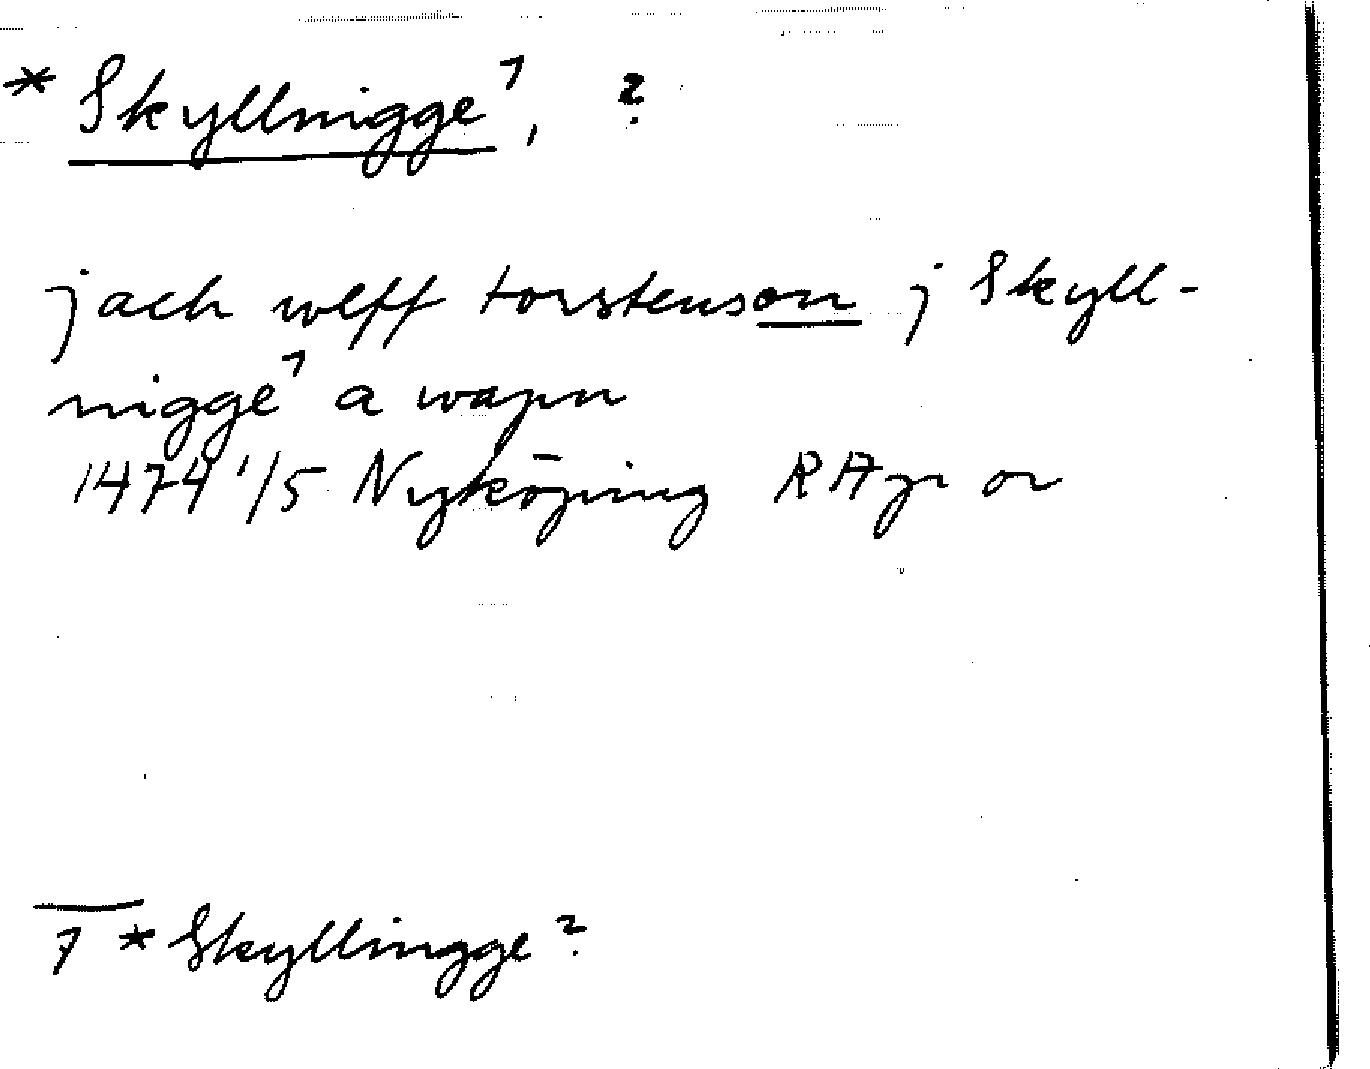 * Skyllnigge⁷, ?
jach wlff torstenson j Skyll-
nigge⁷ a wapn
1474 1/5 Nyköping RAp or
7 * Skyllingge?